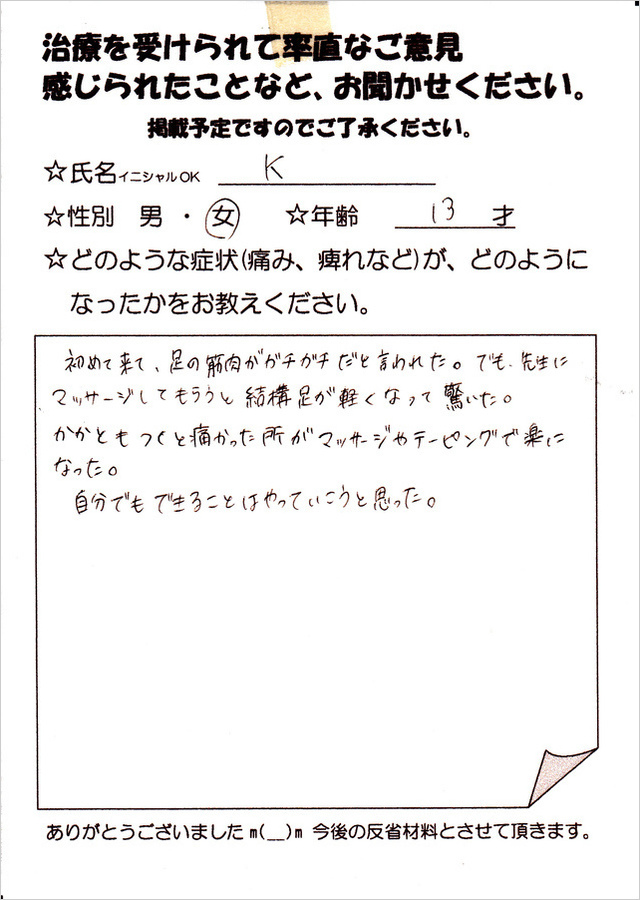 治療を受けられて率直なご意見
感じられたことなど、お聞かせください。
掲載予定ですのでご了承ください。
☆氏名イニシャルOK K
☆性別 男 ・ 女 ☆年齢 13 才
☆どのような症状(痛み、痺れなど)が、どのように
なったかをお教えください。
初めて来て、足の筋肉がガチガチだと言われた。でも、先生に
マッサージしてもらうと結構足が軽くなって驚いた。
かかともつくと痛かった所がマッサージやテーピングで楽に
なった。
自分でもできることはやっていこうと思った。
ありがとうございましたm(__)m 今後の反省材料とさせて頂きます。